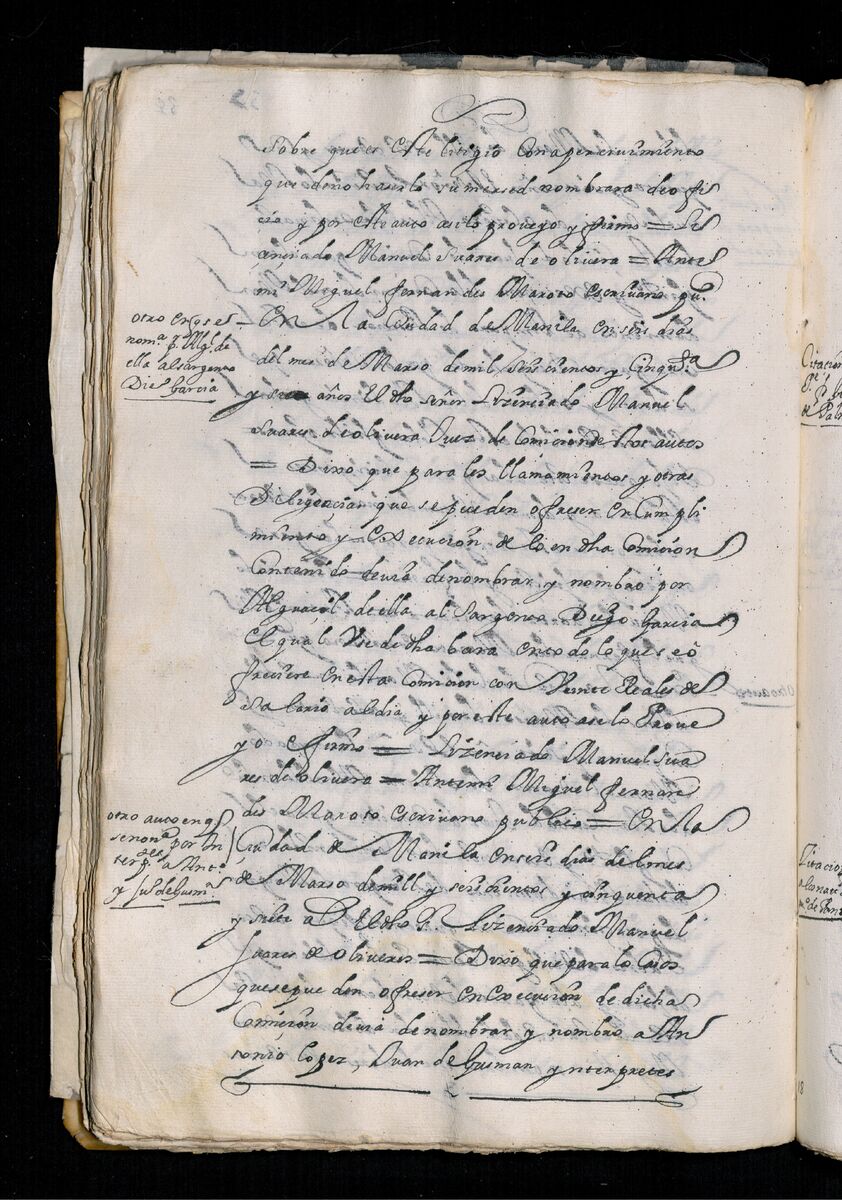 Sobre que es este litigio con apercevimiento
que de no haserlo su mersed nombrara de ofi
cio y por este auto asi lo proveyo y firmo = Li
cenciado Manuel Suares de olivera = Ante
mi Miguel fernandes Maroto escrivano pu.co
otro en q se
nom.a p.r Alg.l de
ella al sargento
Die.o Garcia
En la Ciudad de Manila en seis dias
del mes de Marso de mil seiscientos y cinq.ta
y siete años El dho señor Lizenciado Manuel
Suares de olivera Juez de Comicion de stos autos
= Dixo que para los llamamientos y otras
Diligencias que se pueden ofreser en cumpli
miento y execucion de lo en dha Comicion
Contenido devia de nombrar y nombro por
Alguacil de ella al Sargento Diego Garcia
el qual Vse de dha bara en todo lo que se o
fresiere en esta Comicion con Veinte Reales de
Salario al dia y por este auto asi lo Prove
yo e firmo = Lizenciado Manuel Sua
res de olivera = Ante mi Miguel fernan
des Maroto escrivano publico = En la
otro auto en q
se nom.a por in
terp.tes a Ant.o
y Ju.o de Gusm.n
Ciudad de Manila en seis dias del mes
de Marso de mill y seiscientos y cinquenta
y siete a.s El dho S.r Lizenciado Manuel
Suares de oliveres = Dixo que para lo casos
que se pueden ofreser en execucion de dicha
Comicion devia de nombrar y nombro a An
tonio lopez, Juan de Gusman ynterpretes
Otro auto
Citacion
Citacion